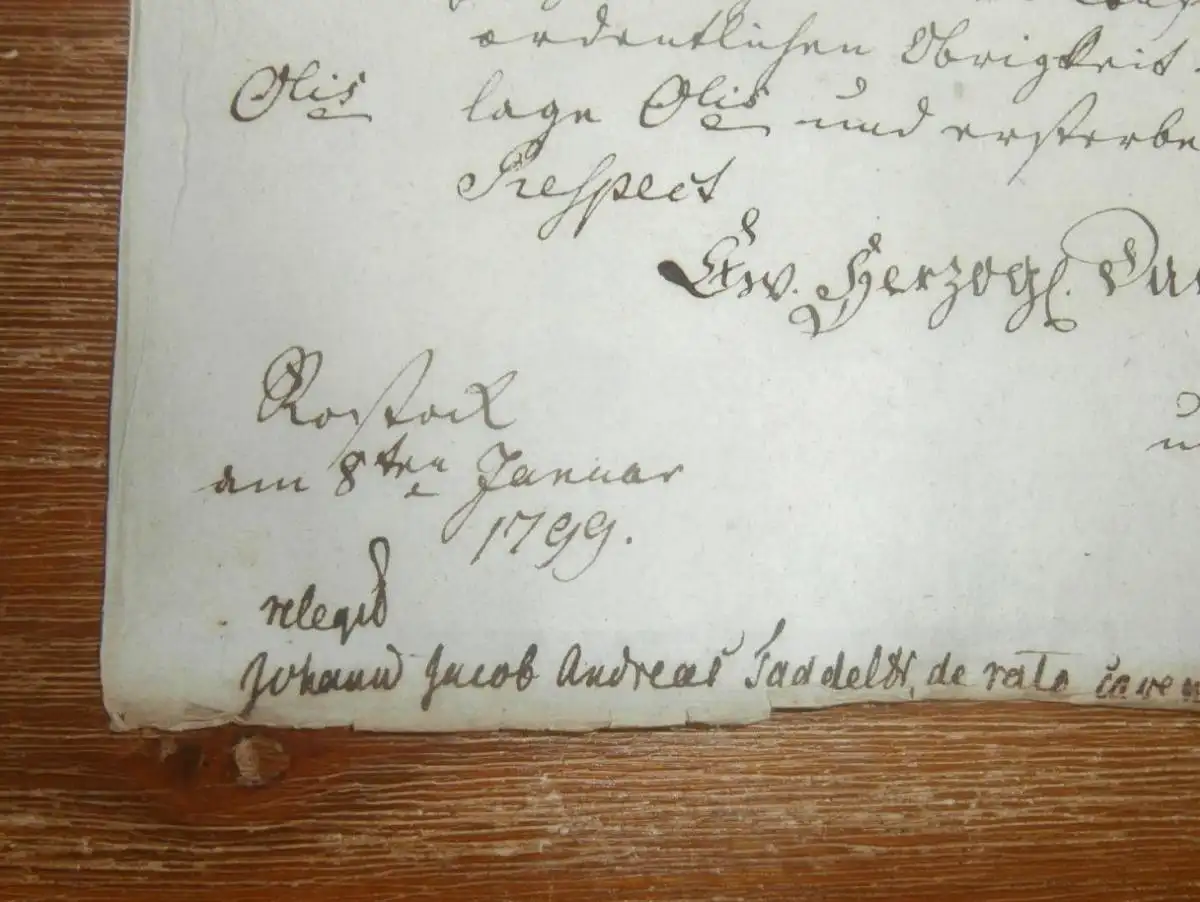 ordentlichen Obrigkeit
Olis
lage Olis und ersterbe
Respect
Ew. Herzogl. Dur
Rostock
am 8ten Januar
1799.
relegi
Johann Jacob Andreas Taddel de rato